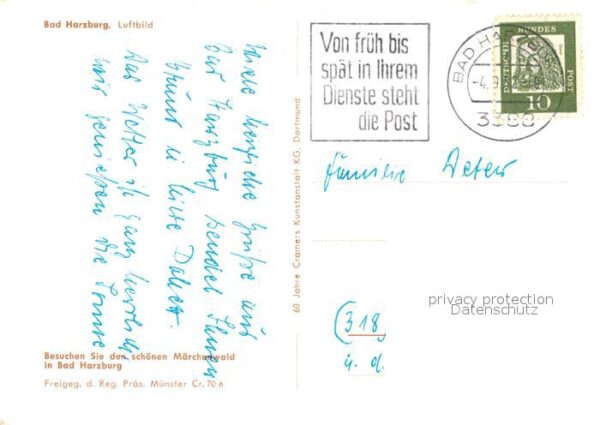 Bad Harzburg, Luftbild
Viele herzliche Grüße aus
Bad Harzburg sendet Ihnen
Das Wetter ist ganz herrlich
wir genießen die Sonne
Besuchen Sie den schönen Märchenwald
in Bad Harzburg
Freigeg. d. Reg. Präs. Münster Cr. 70 6
60 Jahre Cramers Kunstanstalt KG, Dortmund
Von früh bis
spät in Ihrem
Dienste steht
die Post
BAD HARZBURG
-4.9.
3388
DEUTSCHE BUNDESPOST
10
Familie
(318)
u. d.
privacy protection
Datenschutz